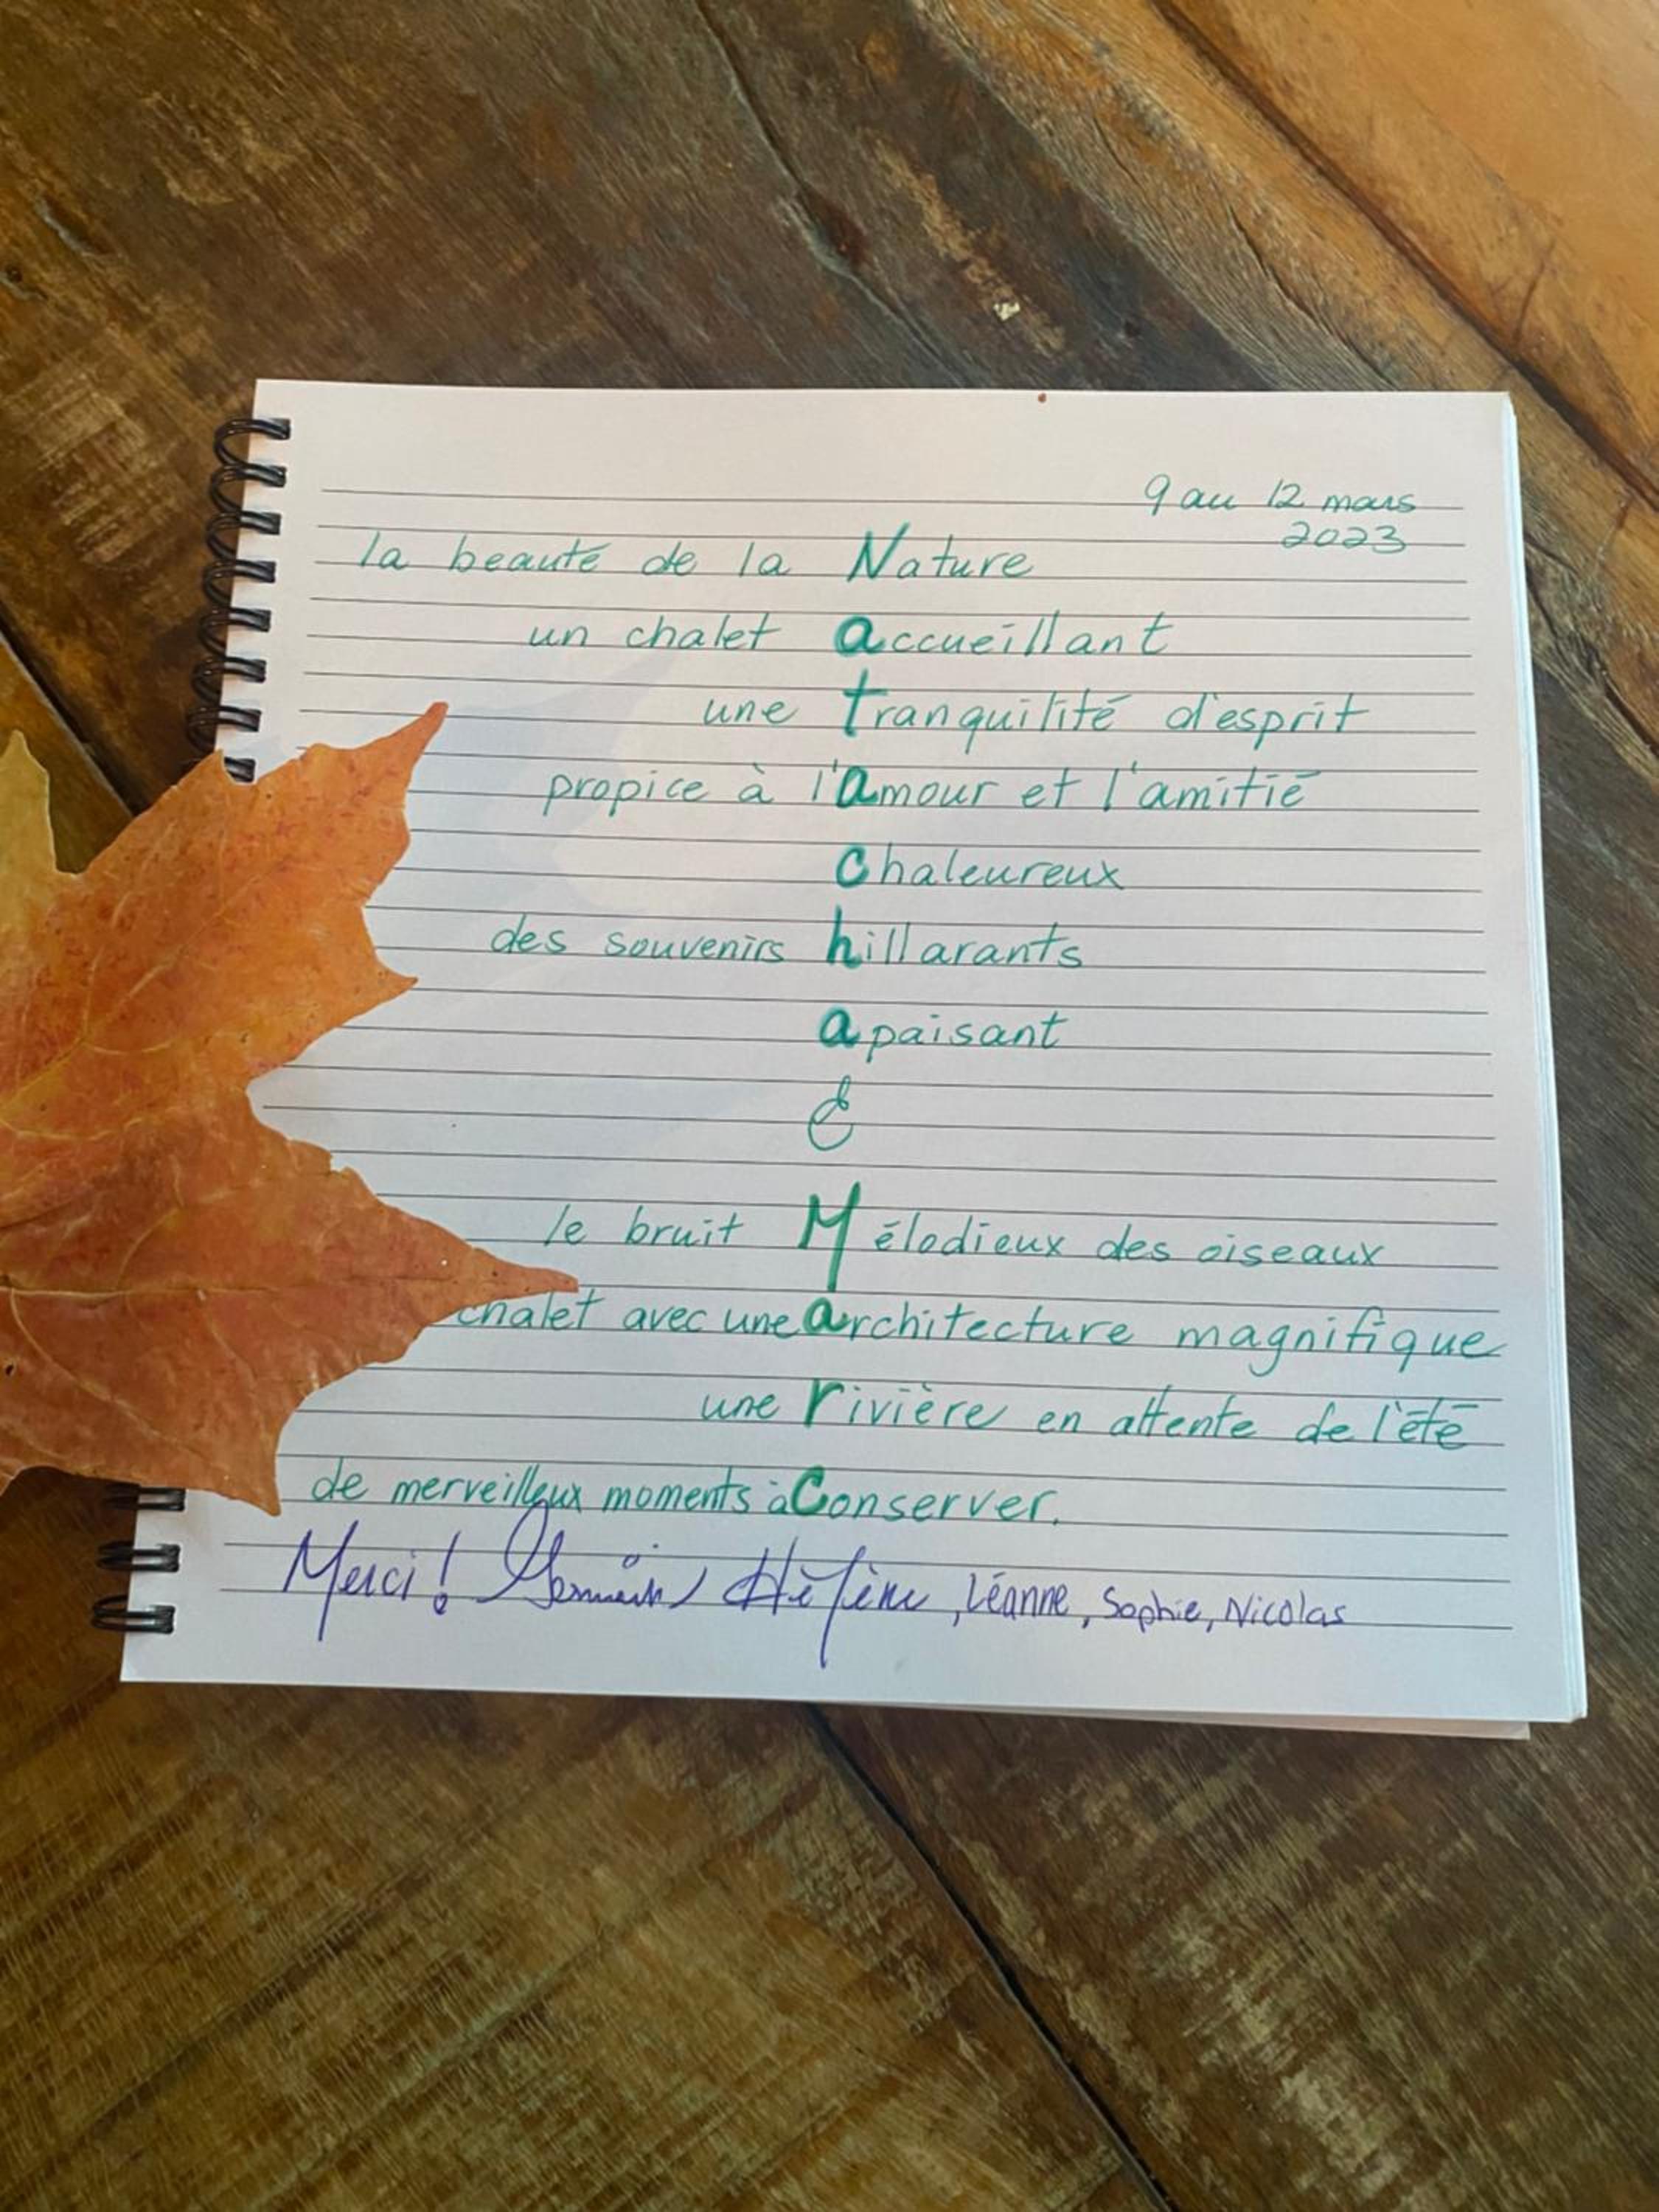 9 au 12 mars
2023
la beauté de la Nature
un chalet accueillant
une tranquilité d'esprit
propice à l'amour et l'amitié
chaleureux
des souvenirs hillarants
apaisant
&
le bruit Mélodieux des oiseaux
chalet avec une architecture magnifique
une rivière en attente de l'été
de merveilleux moments à Conserver.
Merci! Germain Hélène, Léanne, Sophie, Nicolas